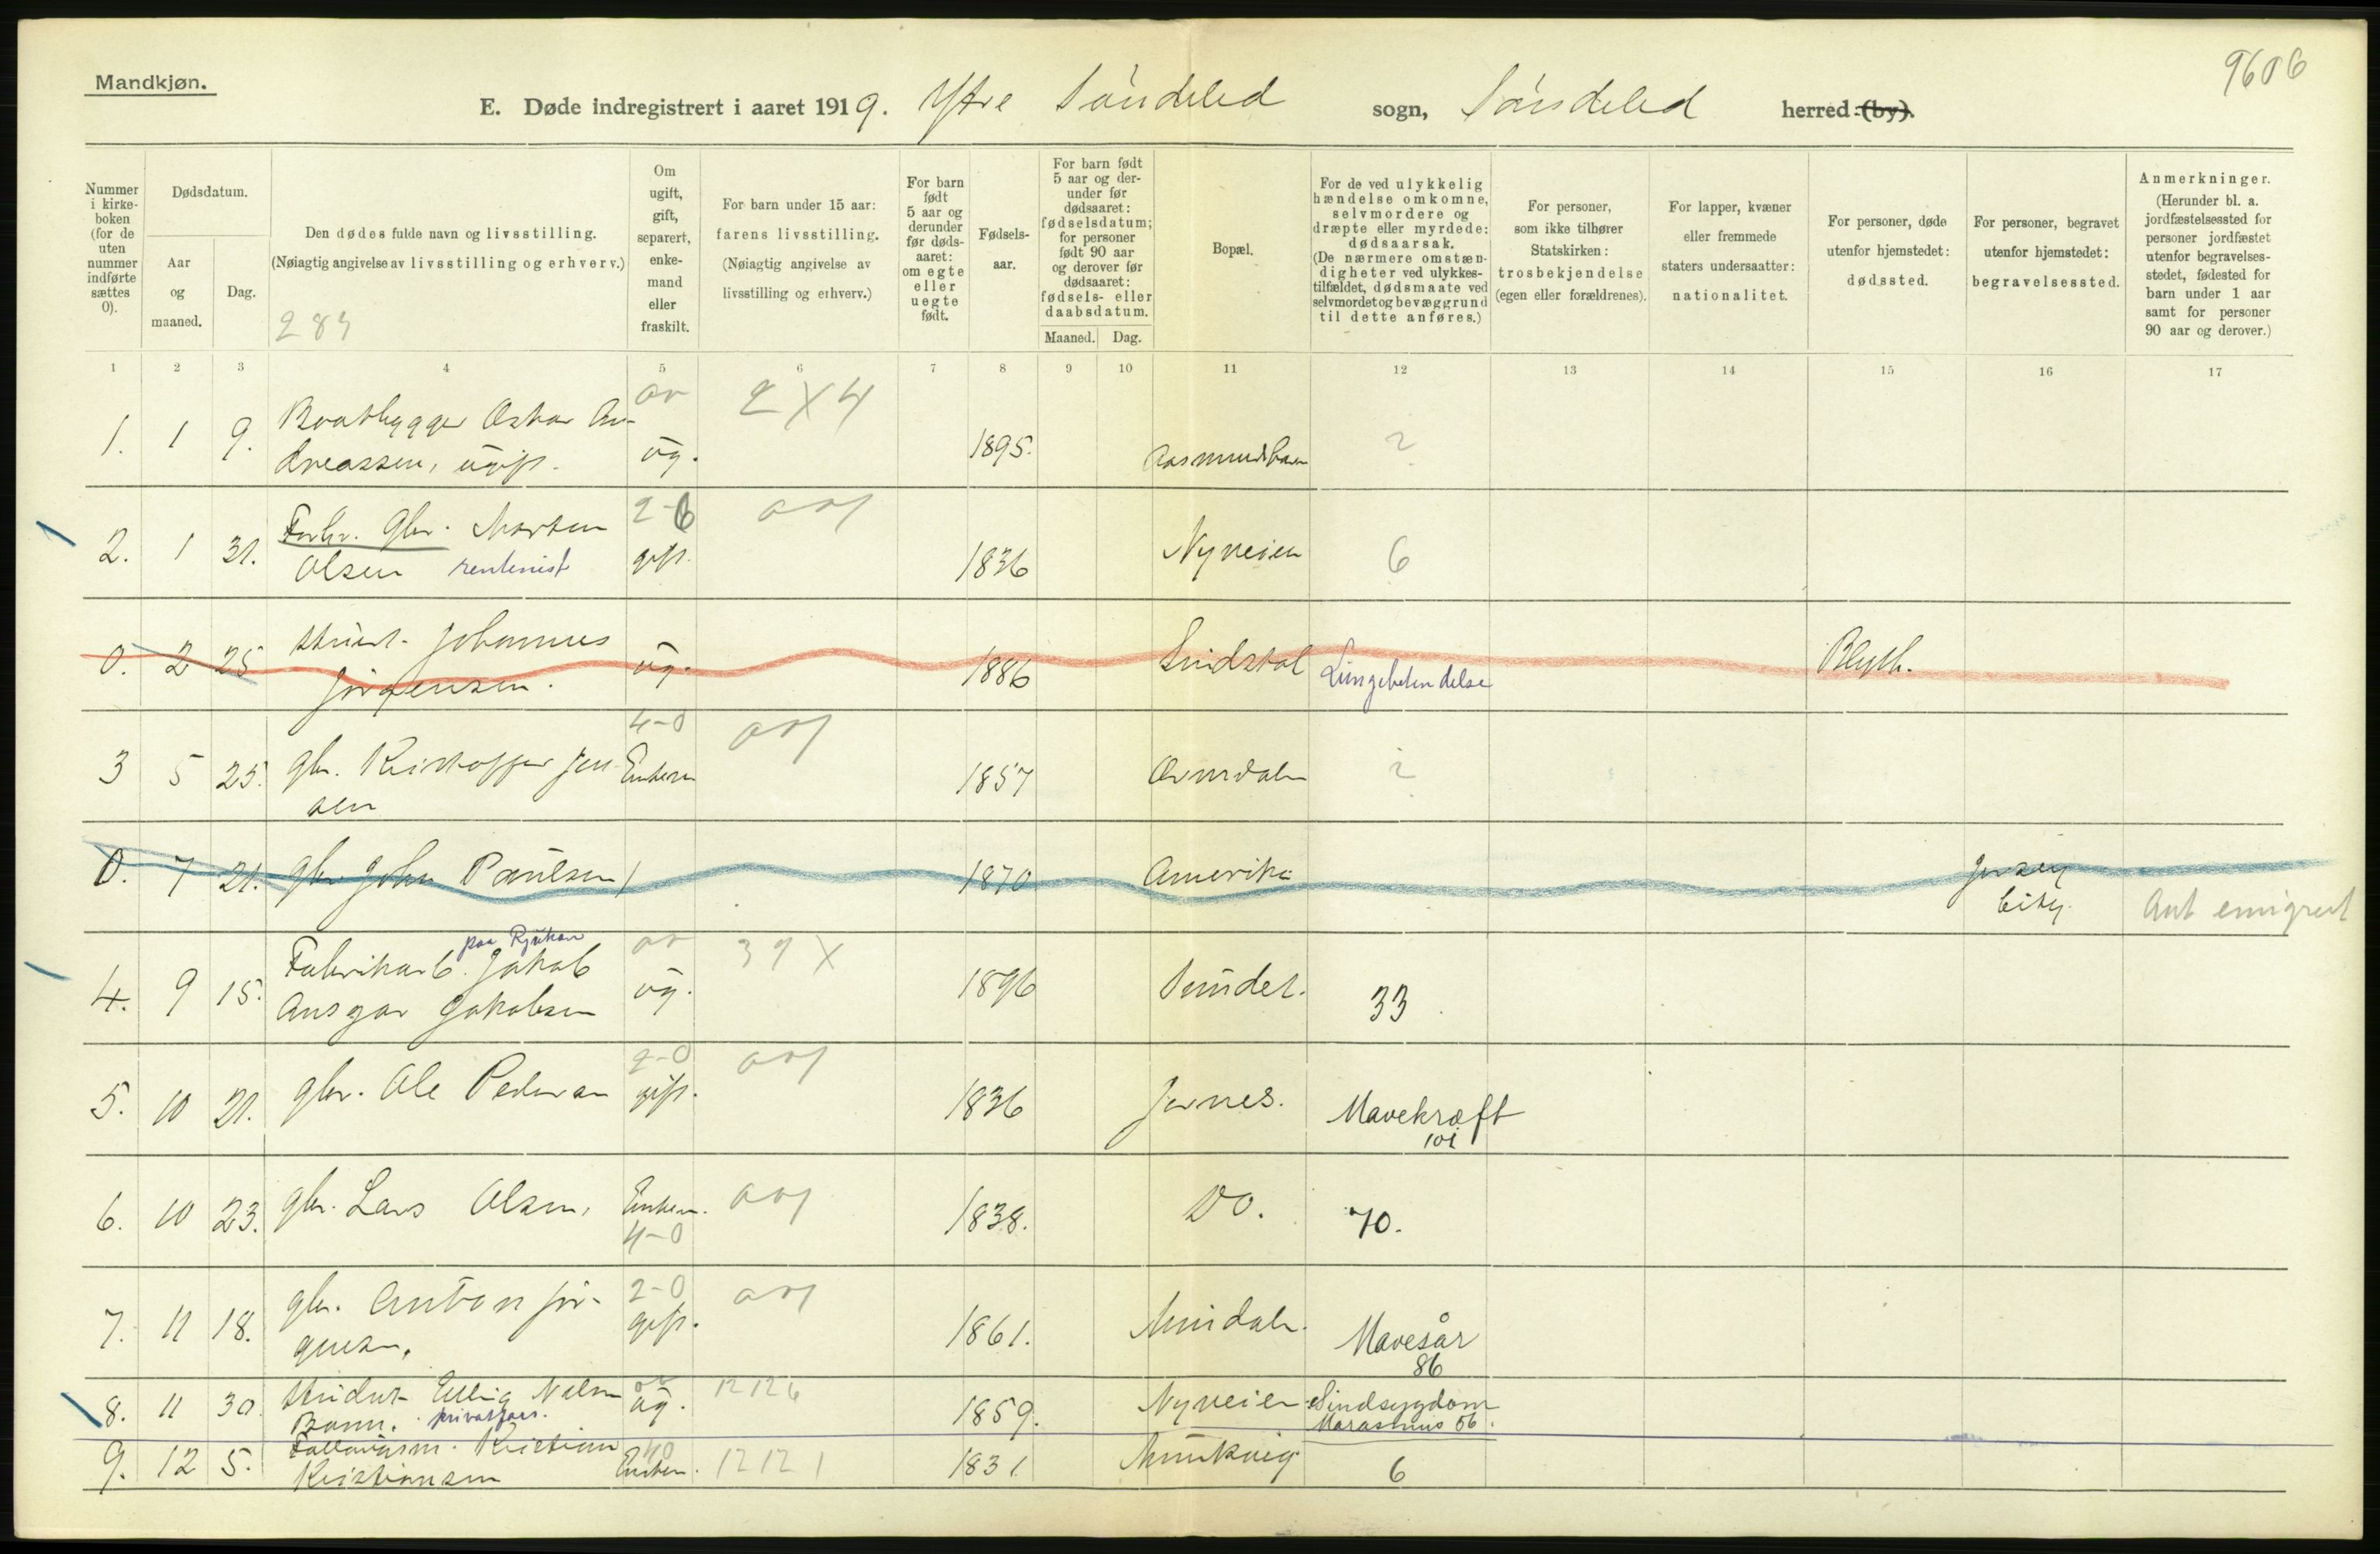 9606
Mandkjøn.
E. Døde indregistrert i aaret 1919. Ytre Søndeled sogn, Søndeled herred (by).
Nummer i kirkeboken (for de uten nummer indførte sættes 0).
Dødsdatum.
Aar og maaned.
Dag.
Den dødes fulde navn og livsstilling.
(Nøiagtig angivelse av livsstilling og erhverv.)
289
Om ugift, gift, separert, enkemand eller fraskilt.
For barn under 15 aar: farens livsstilling.
(Nøiagtig angivelse av livsstilling og erhverv.)
For barn født 5 aar og derunder før dødsaaret: om egte eller uegte født.
Fødselsaar.
For barn født 5 aar og derunder før dødsaaret: fødselsdatum; for personer født 90 aar og derover før dødsaaret: fødsels- eller daabsdatum.
Maaned. Dag.
Bopæl.
For de ved ulykkelig hændelse omkomne, selvmordere og dræpte eller myrdede: dødsaarsak.
(De nærmere omstændigheter ved ulykkestilfældet, dødsmaate ved selvmordet og bevæggrund til dette anføres.)
For personer, som ikke tilhører Statskirken: trosbekjendelse (egen eller forældrenes).
For lapper, kvæner eller fremmede staters undersaatter: nationalitet.
For personer, døde utenfor hjemstedet: dødssted.
For personer, begravet utenfor hjemstedet: begravelsessted.
Anmerkninger.
(Herunder bl. a. jordfæstelsessted for personer jordfæstet utenfor begravelsesstedet, fødested for barn under 1 aar samt for personer 90 aar og derover.)
1 2 3 4 5 6 7 8 9 10 11 12 13 14 15 16 17
ar 2 X 4
1. 1 9. Baatbygger Oskar An-
dreassen, ugift. ug. 1895. Aasmundhavn ?
2-6
2. 1 31. Forhv. Gbr. Morten
Olsen rentenist gift. 1836 Nyveien 6
0. 2 25 Stuert. Johannes
Jørgensen. ug. 1886 Lindstøl Lungebetendelse Blyth.
4-0
3 5 25. gbr. Kristoffer Jen-
sen Enkem 1857 ?
0. 7 21. gbr John Paulsen 1870 Amerika Jersey
City. Ant emigrert
paa Rjukan ar 39 X
4. 9 15. Fabrikarb. Jakob
Ansgar Jakobsen ug. 1896 Sundet. 33
2-0
5. 10 21. gbr. Ole Pedersen gift. 1836 Jernes. Mavekræft
101
6. 10 23. gbr. Lars Olsen, Enkem. 1838. Do. 70.
4-0
2-0
7. 11 18. gbr. Anton Jør-
gensen. gift. 1861. Mavesår
86
12 12 6
8. 11 30. Student Ellig Nilsen
Bonn. privatlær. ug. 1859. Nyveien Sindsygdom
Marasmus 56.
9. 12 5. Kristian
Kristiansen Enkem. 12 12 1 1831 6